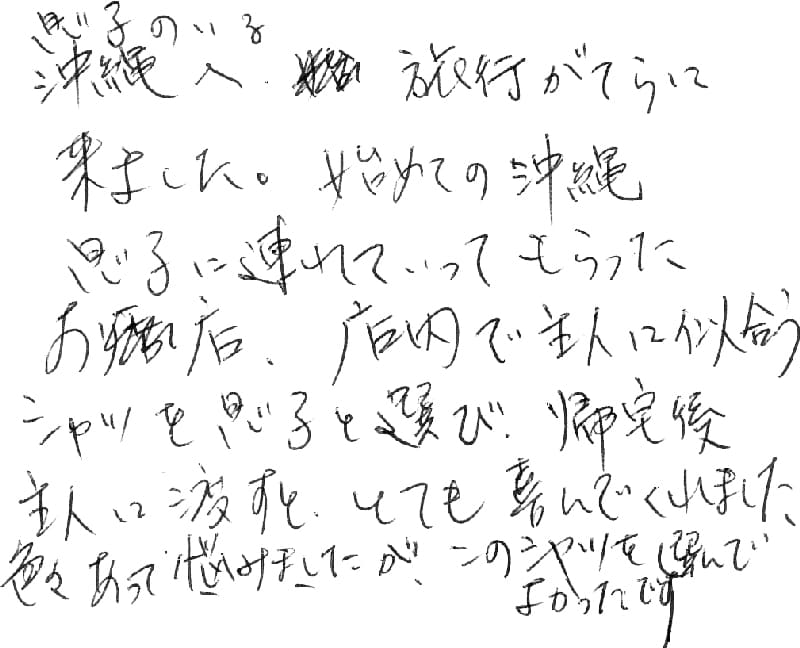 息子のいる
沖縄へ 旅行がてらに
来ました。始めての沖縄
息子に連れていってもらった
お店、店内で主人に似合う
シャツを息子と選び、帰宅後
主人に渡すと、とても喜んでくれました、
色々あって悩みましたが、このシャツを選んで
よかったです